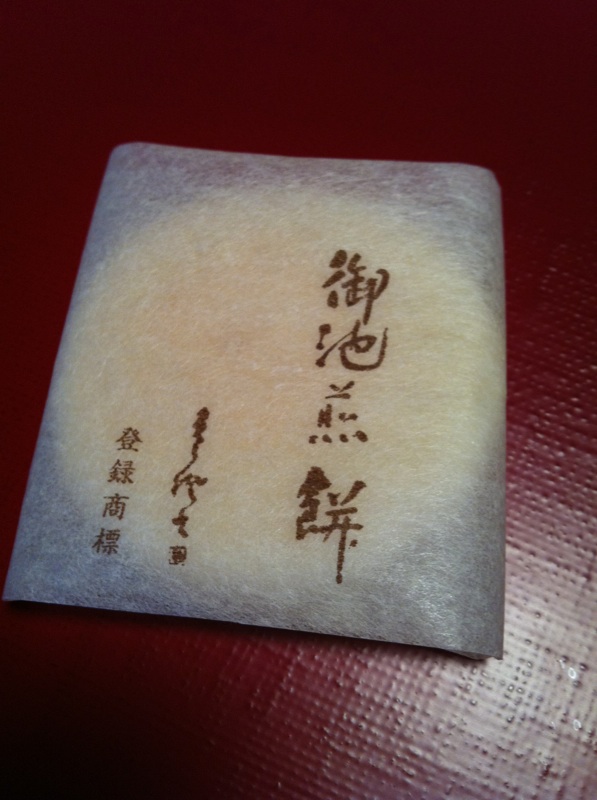 御池煎餅
登録商標